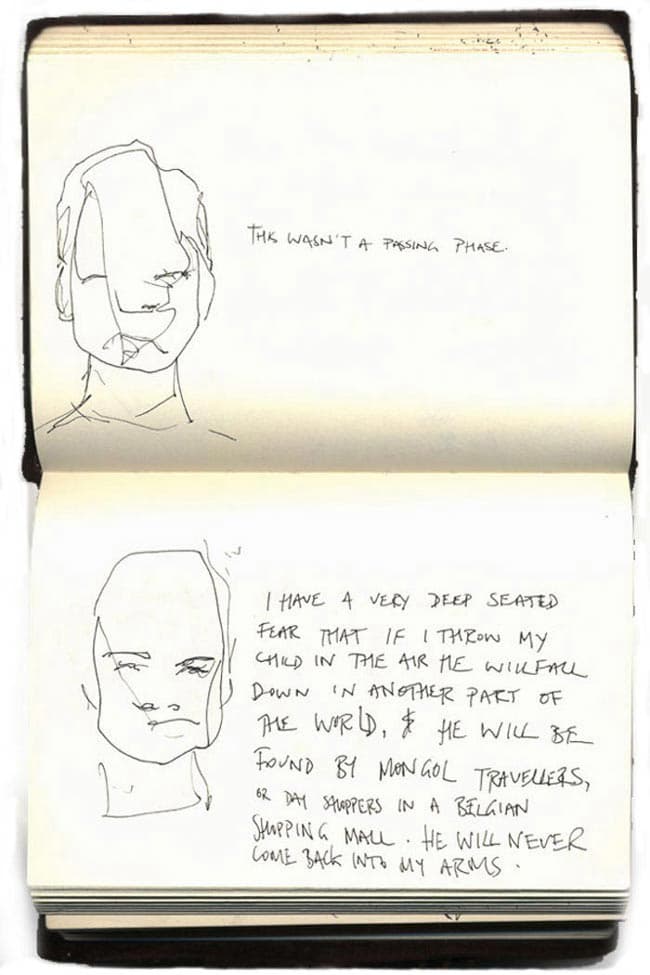 THIS WASN'T A PASSING PHASE.
I HAVE A VERY DEEP SEATED
FEAR THAT IF I THROW MY
CHILD IN THE AIR HE WILL FALL
DOWN IN ANOTHER PART OF
THE WORLD, & HE WILL BE
FOUND BY MONGOL TRAVELLERS,
OR DAY SHOPPERS IN A BELGIAN
SHOPPING MALL. HE WILL NEVER
COME BACK INTO MY ARMS.